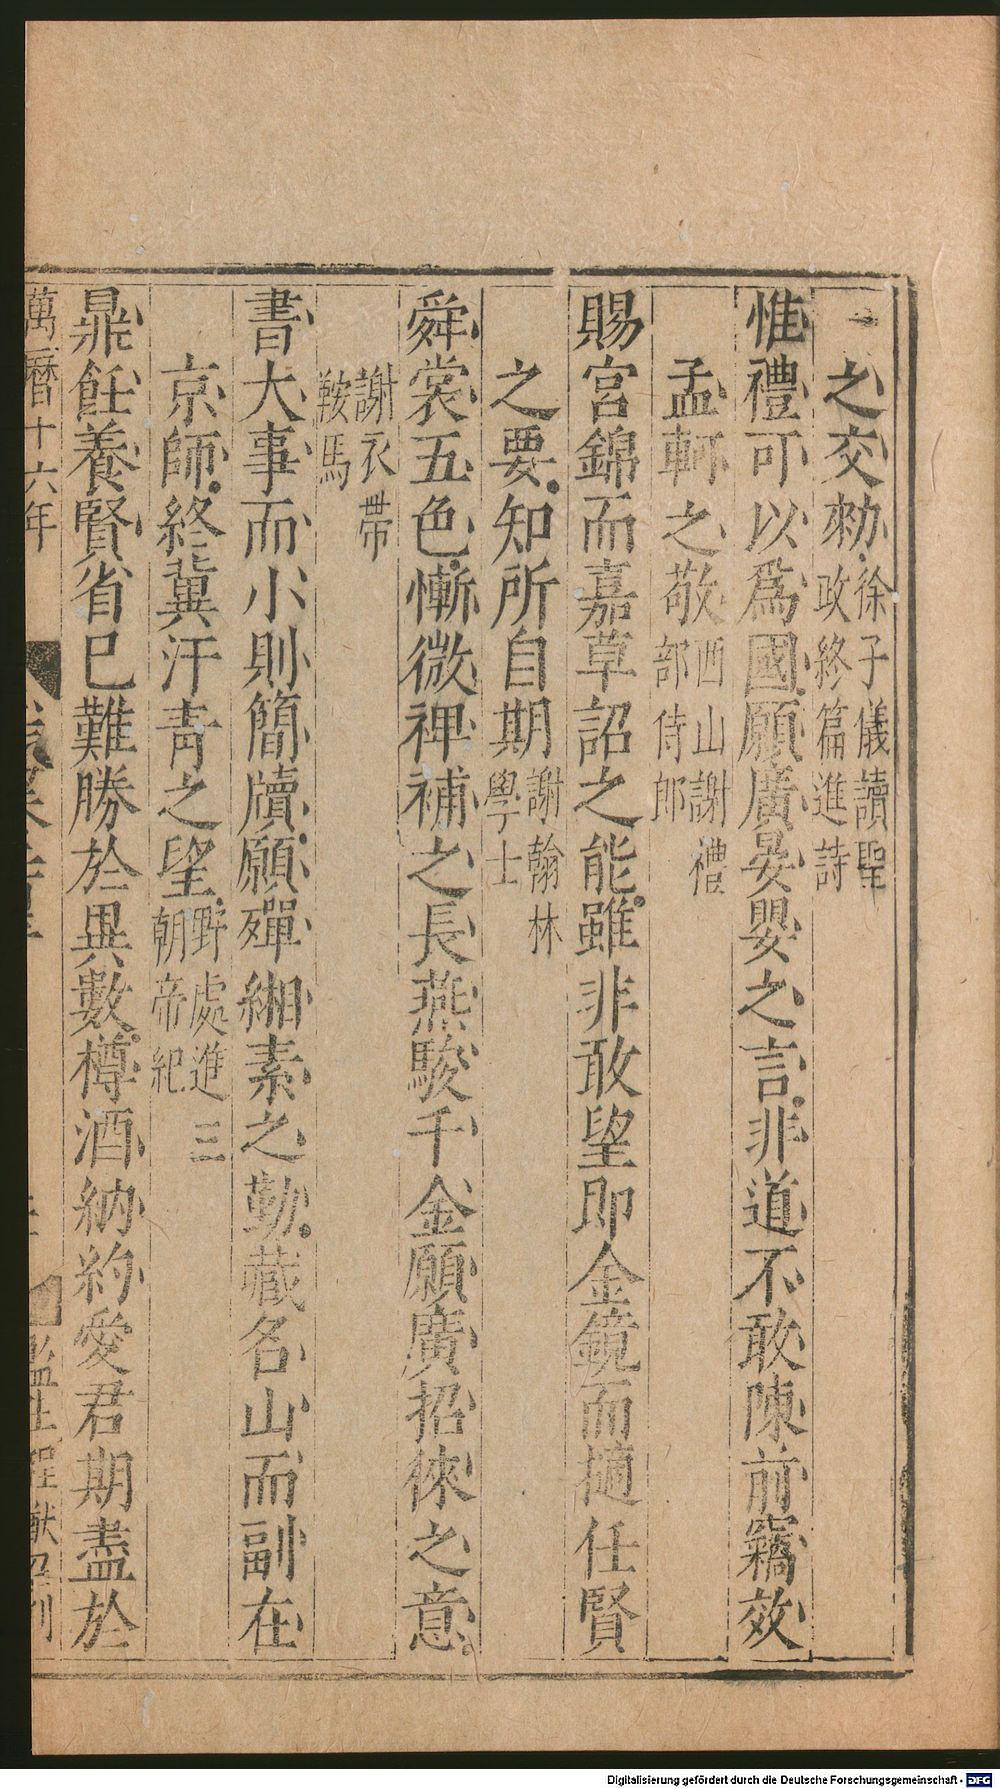 之交勑徐子儀讀聖政終篇進詩
惟禮可以爲國願廣晏嬰之言非道不敢陳前竊效
孟軻之敬西山謝禮部侍郎
賜宮錦而嘉草詔之能雖非敢望即金鏡而擿任賢
之要知所自期謝翰林學士
舜裳五色慚微裨補之長燕駿千金願廣招徠之意
謝衣帶鞍馬
書大事而小則簡牘願殫緗素之勤藏名山而副在
京師終冀汗青之望野處進三朝帝紀
鼎飪養賢省已難勝於異數樽酒納約愛君期盡於
萬曆十六年
監生程献召刊
Digitalisierung gefördert durch die Deutsche Forschungsgemeinschaft - DFG